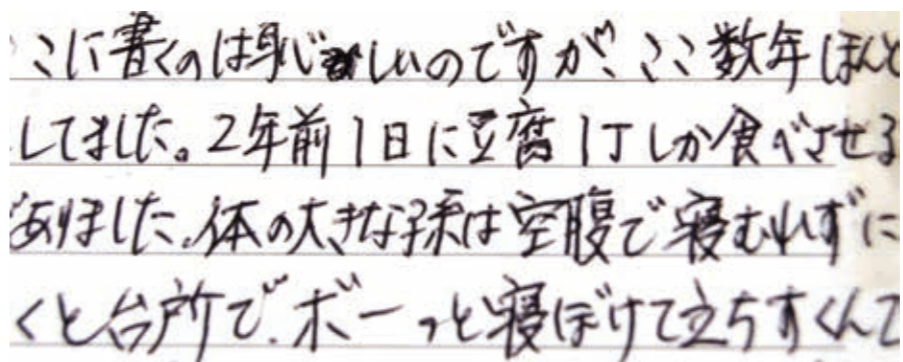 ここに書くのは恥しいのですが、ここ数年ほんと
してました。2年前1日に豆腐1丁しか食べさせる
ありました。体の大きな孫は空腹で寝むれずに
くと台所で、ボーっと寝ぼけて立ちすくんで